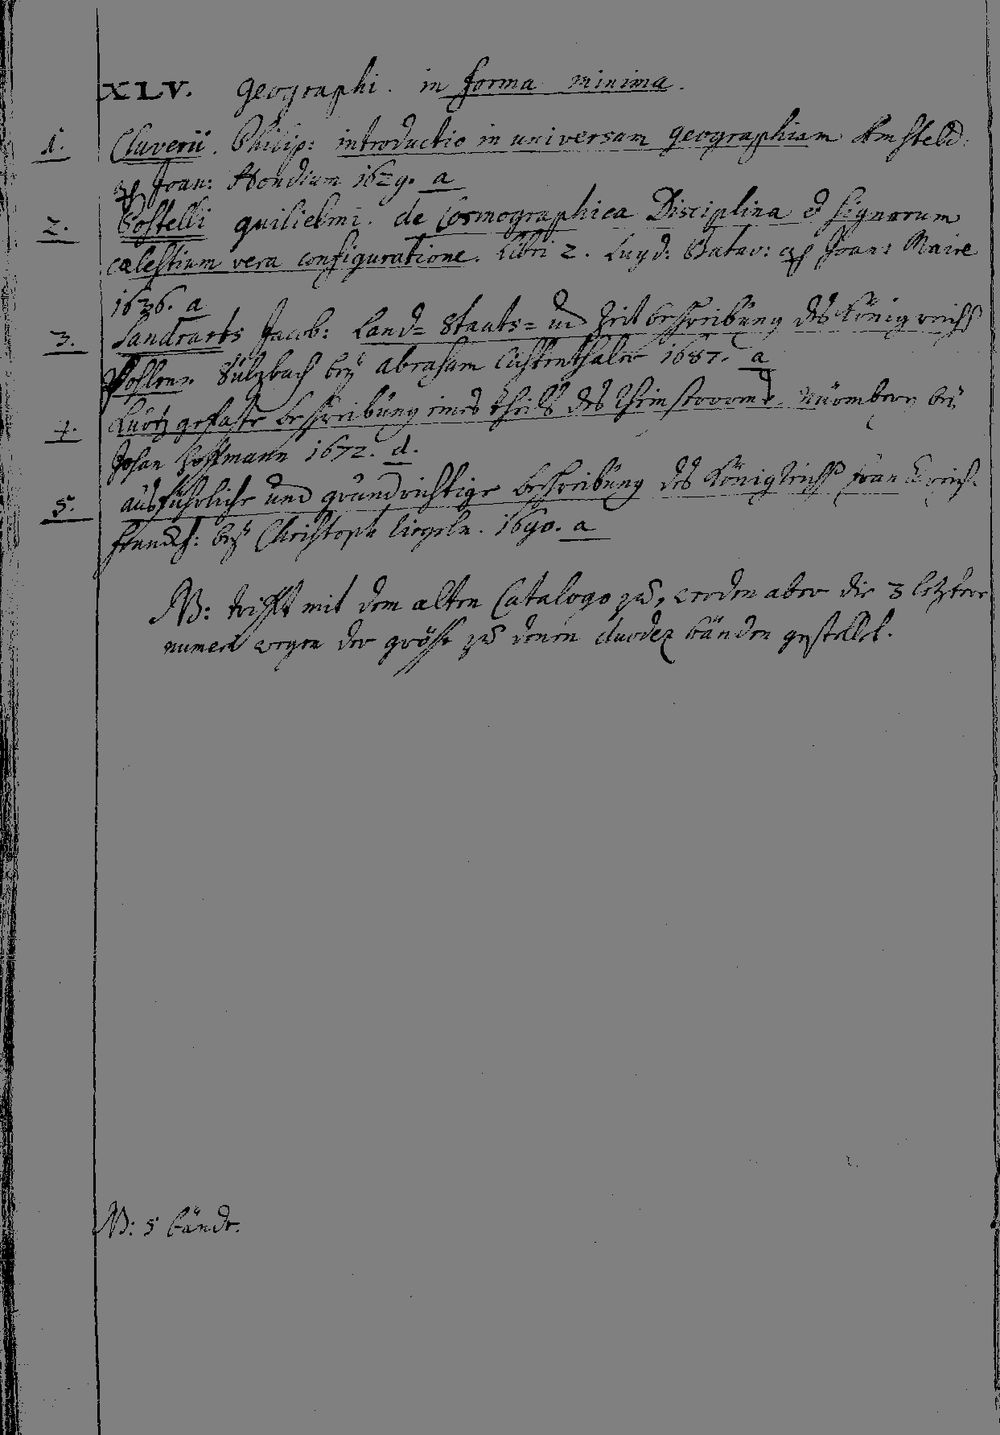 XLV. Geographi. in forma minima.
1. Cluverii. Philip: introductio in universam geographiam Amsteld:
ap Joan: Hondium 1629. a
2. Postelli guilielmi. de Cosmographica Disciplina et signorum
cælestium vera configuratione. Libri 2. Lugd: Batav: ap Joan: Maire
1636. a
3. Sandrarts Jacob: Land= Staats= und Zeit beschreibung des Königreichs
Pohlen. Sultzbach beÿ Abraham Lichtenthaler 1687. a
4. Kurtz gefaste beschreibung eines theils des Rheinstroms. Nürmberg beÿ
Johan Hoffmann 1672. d.
5. ausführliche und grundrichtige beschreibung des Königreichs Franckreich.
Franckf: beÿ Christoph Riegeln. 1690. a
NB: trifft mit dem alten Catalogo zu, werden aber die 3 letztere
numeri wegen der größe zu denen duodez bänden gestellet.
NB: 5 bände.